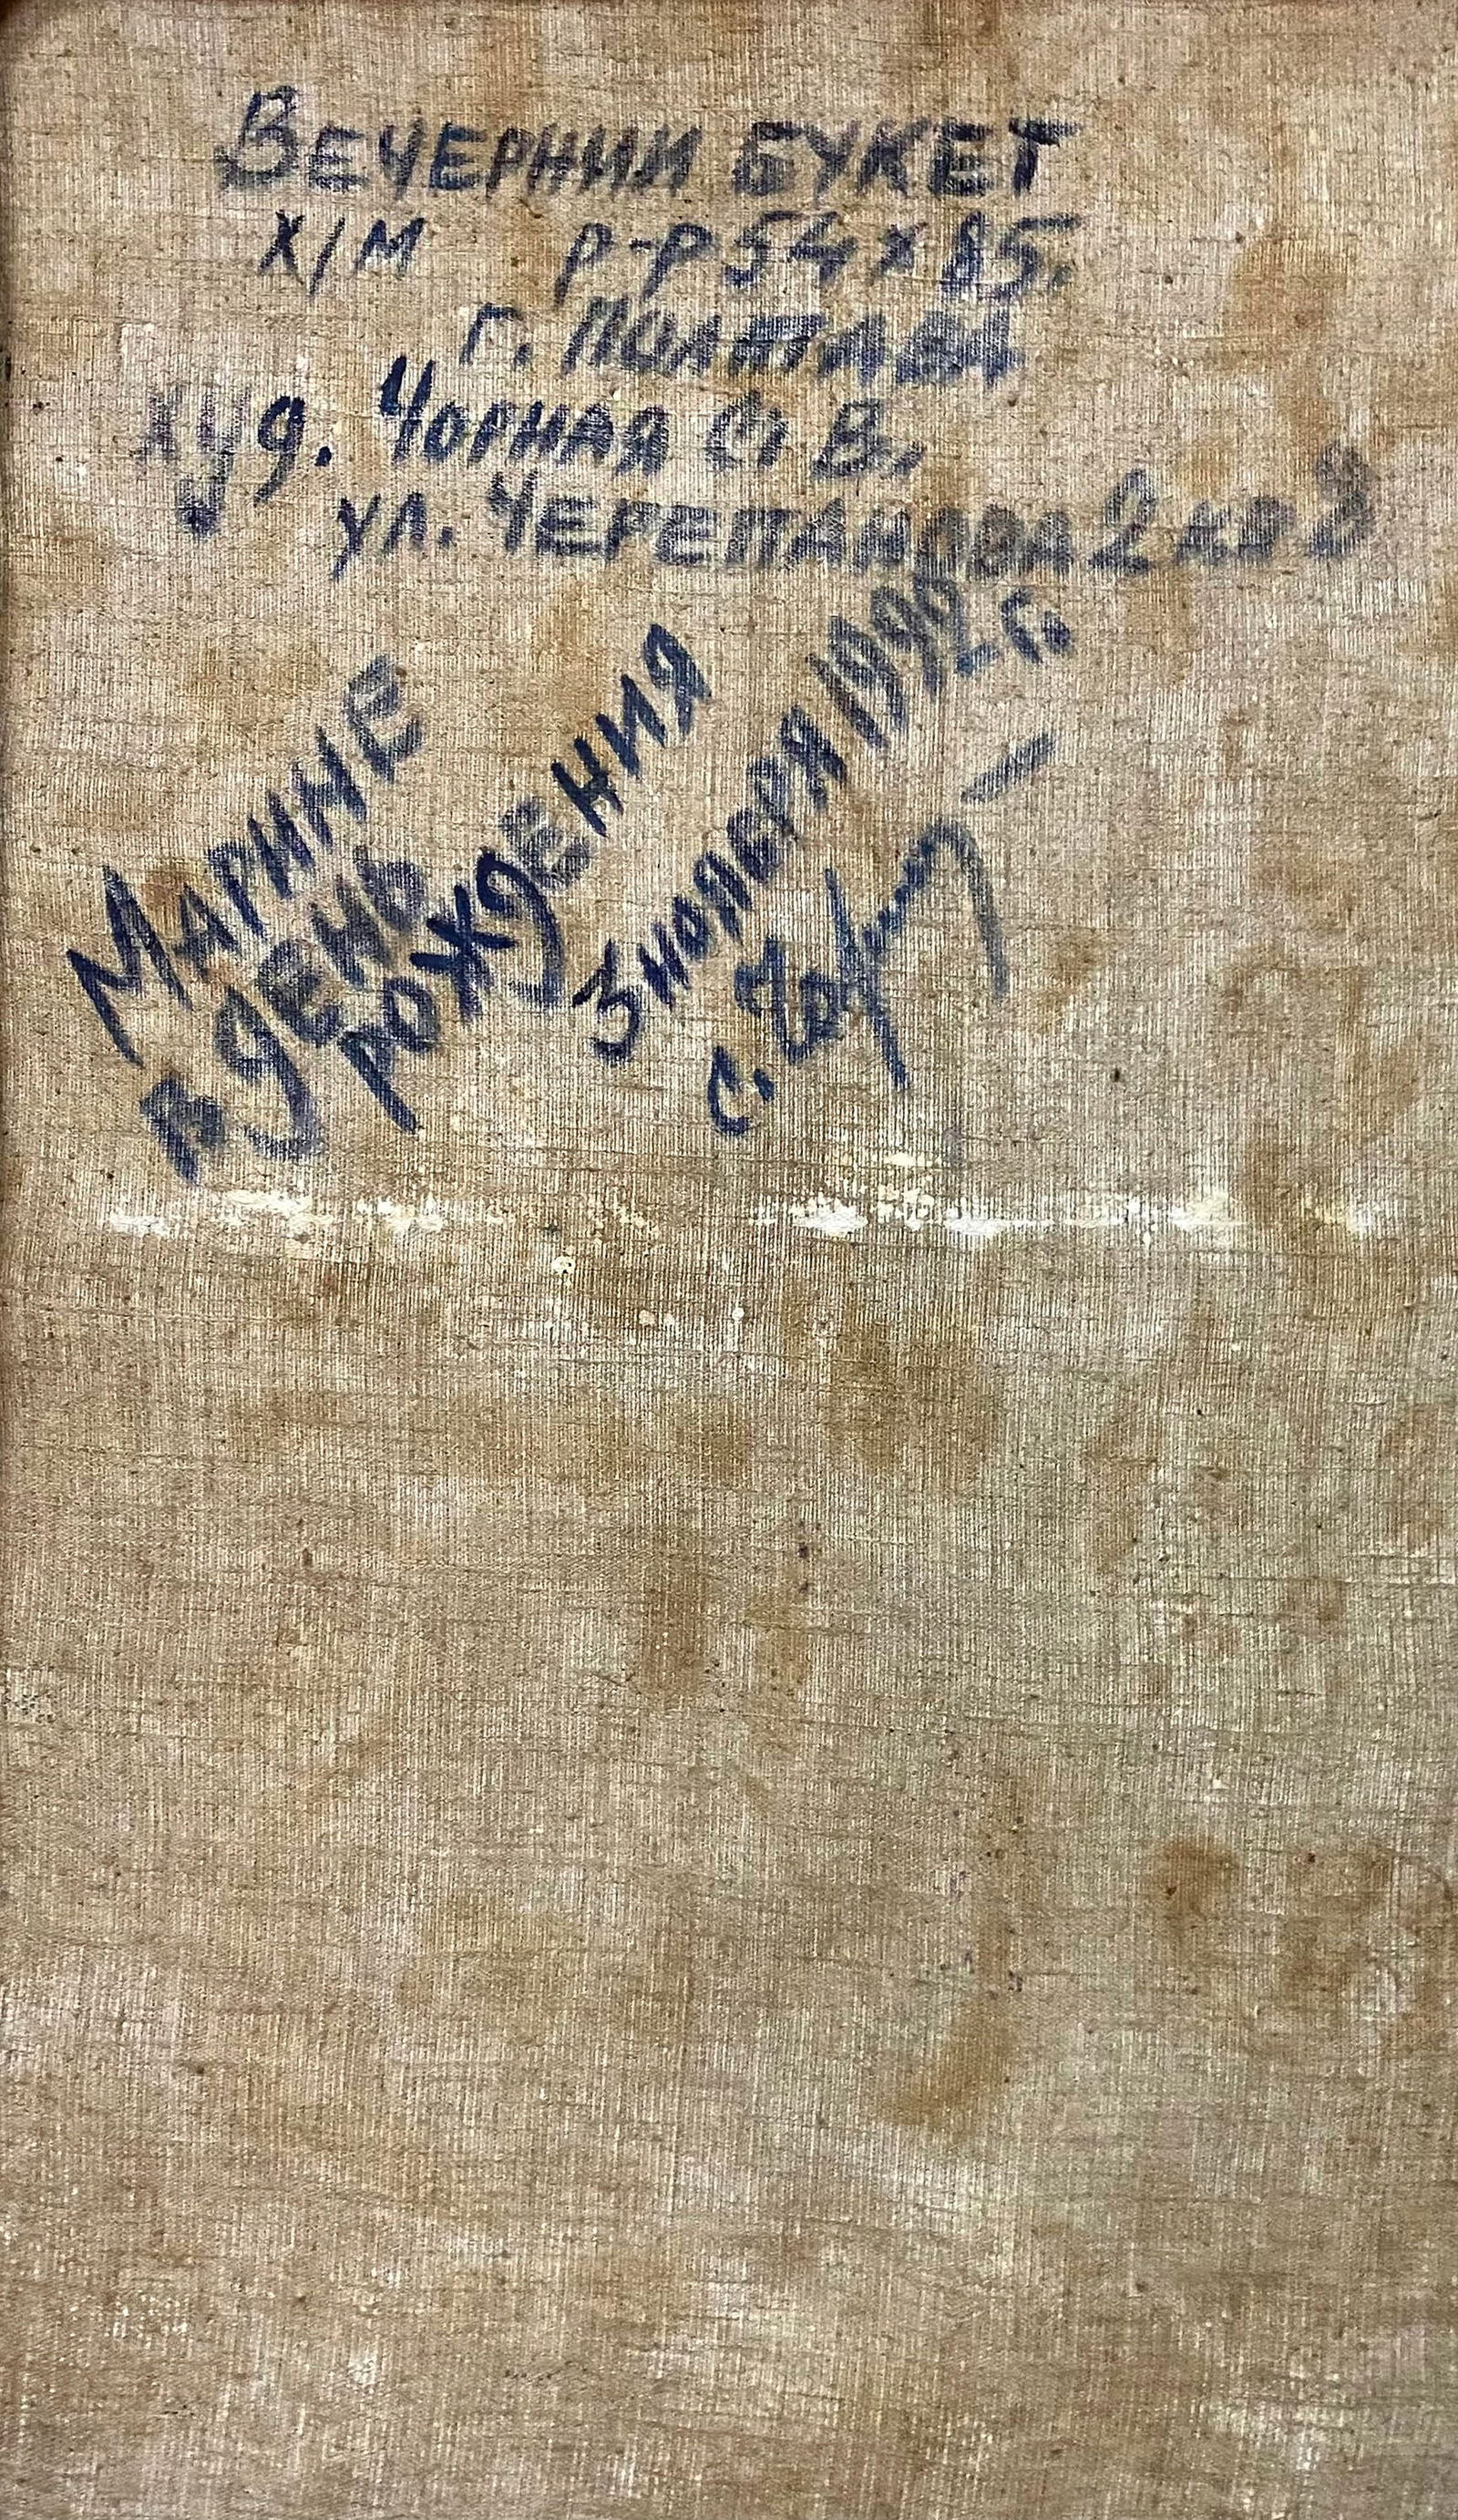 Вечерний букет
х/м р-р 54 х 85.
г. Полтава
худ. Чорная С В.
ул. Черепанова 2 кв
Марине
в день
рождения
3 ноября 1992 г.
с.